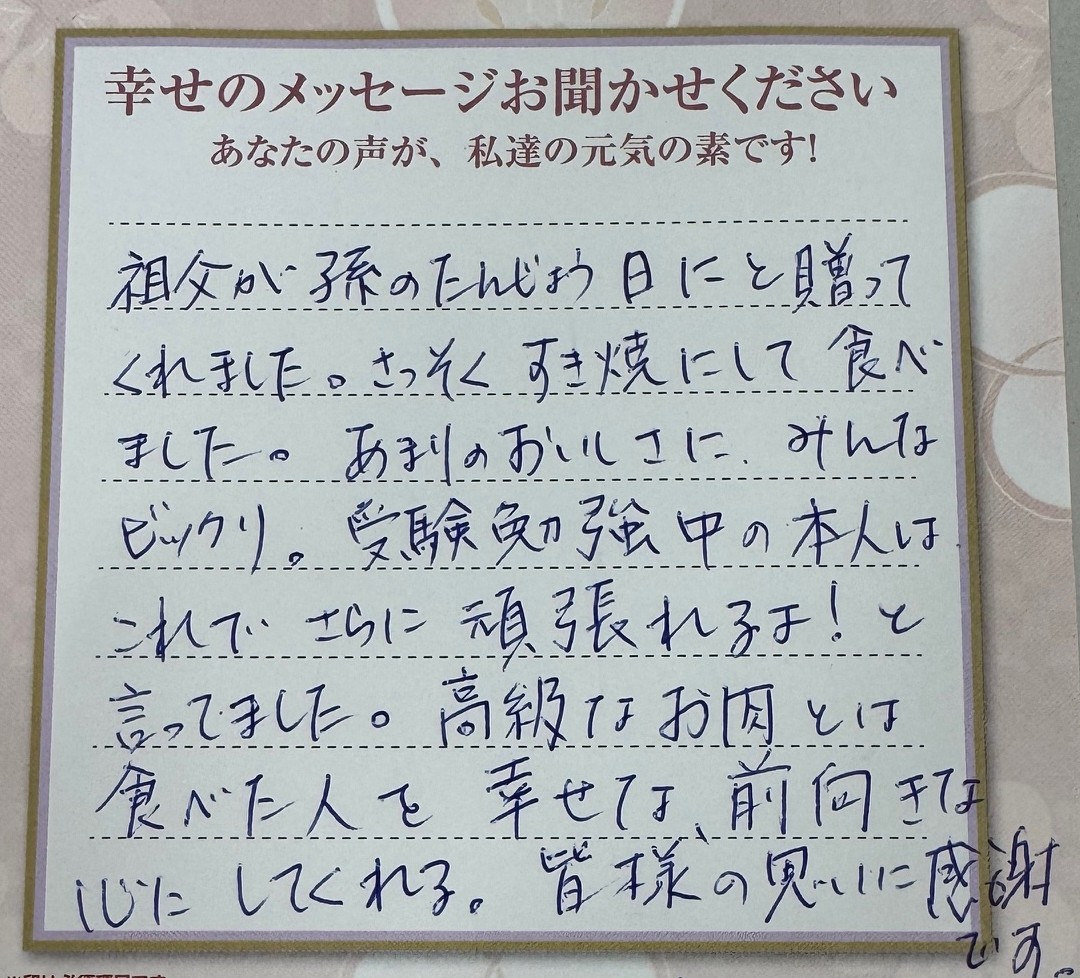 幸せのメッセージお聞かせください
あなたの声が、私達の元気の素です!
祖父が孫のたんじょう日にと贈って
くれました。さっそくすき焼にして食べ
ました。あまりのおいしさに、みんな
ビックリ。受験勉強中の本人は
これでさらに頑張れるよ!と
言ってました。高級なお肉とは
食べた人を幸せな、前向きな
心にしてくれる。皆様の思いに感謝
です。